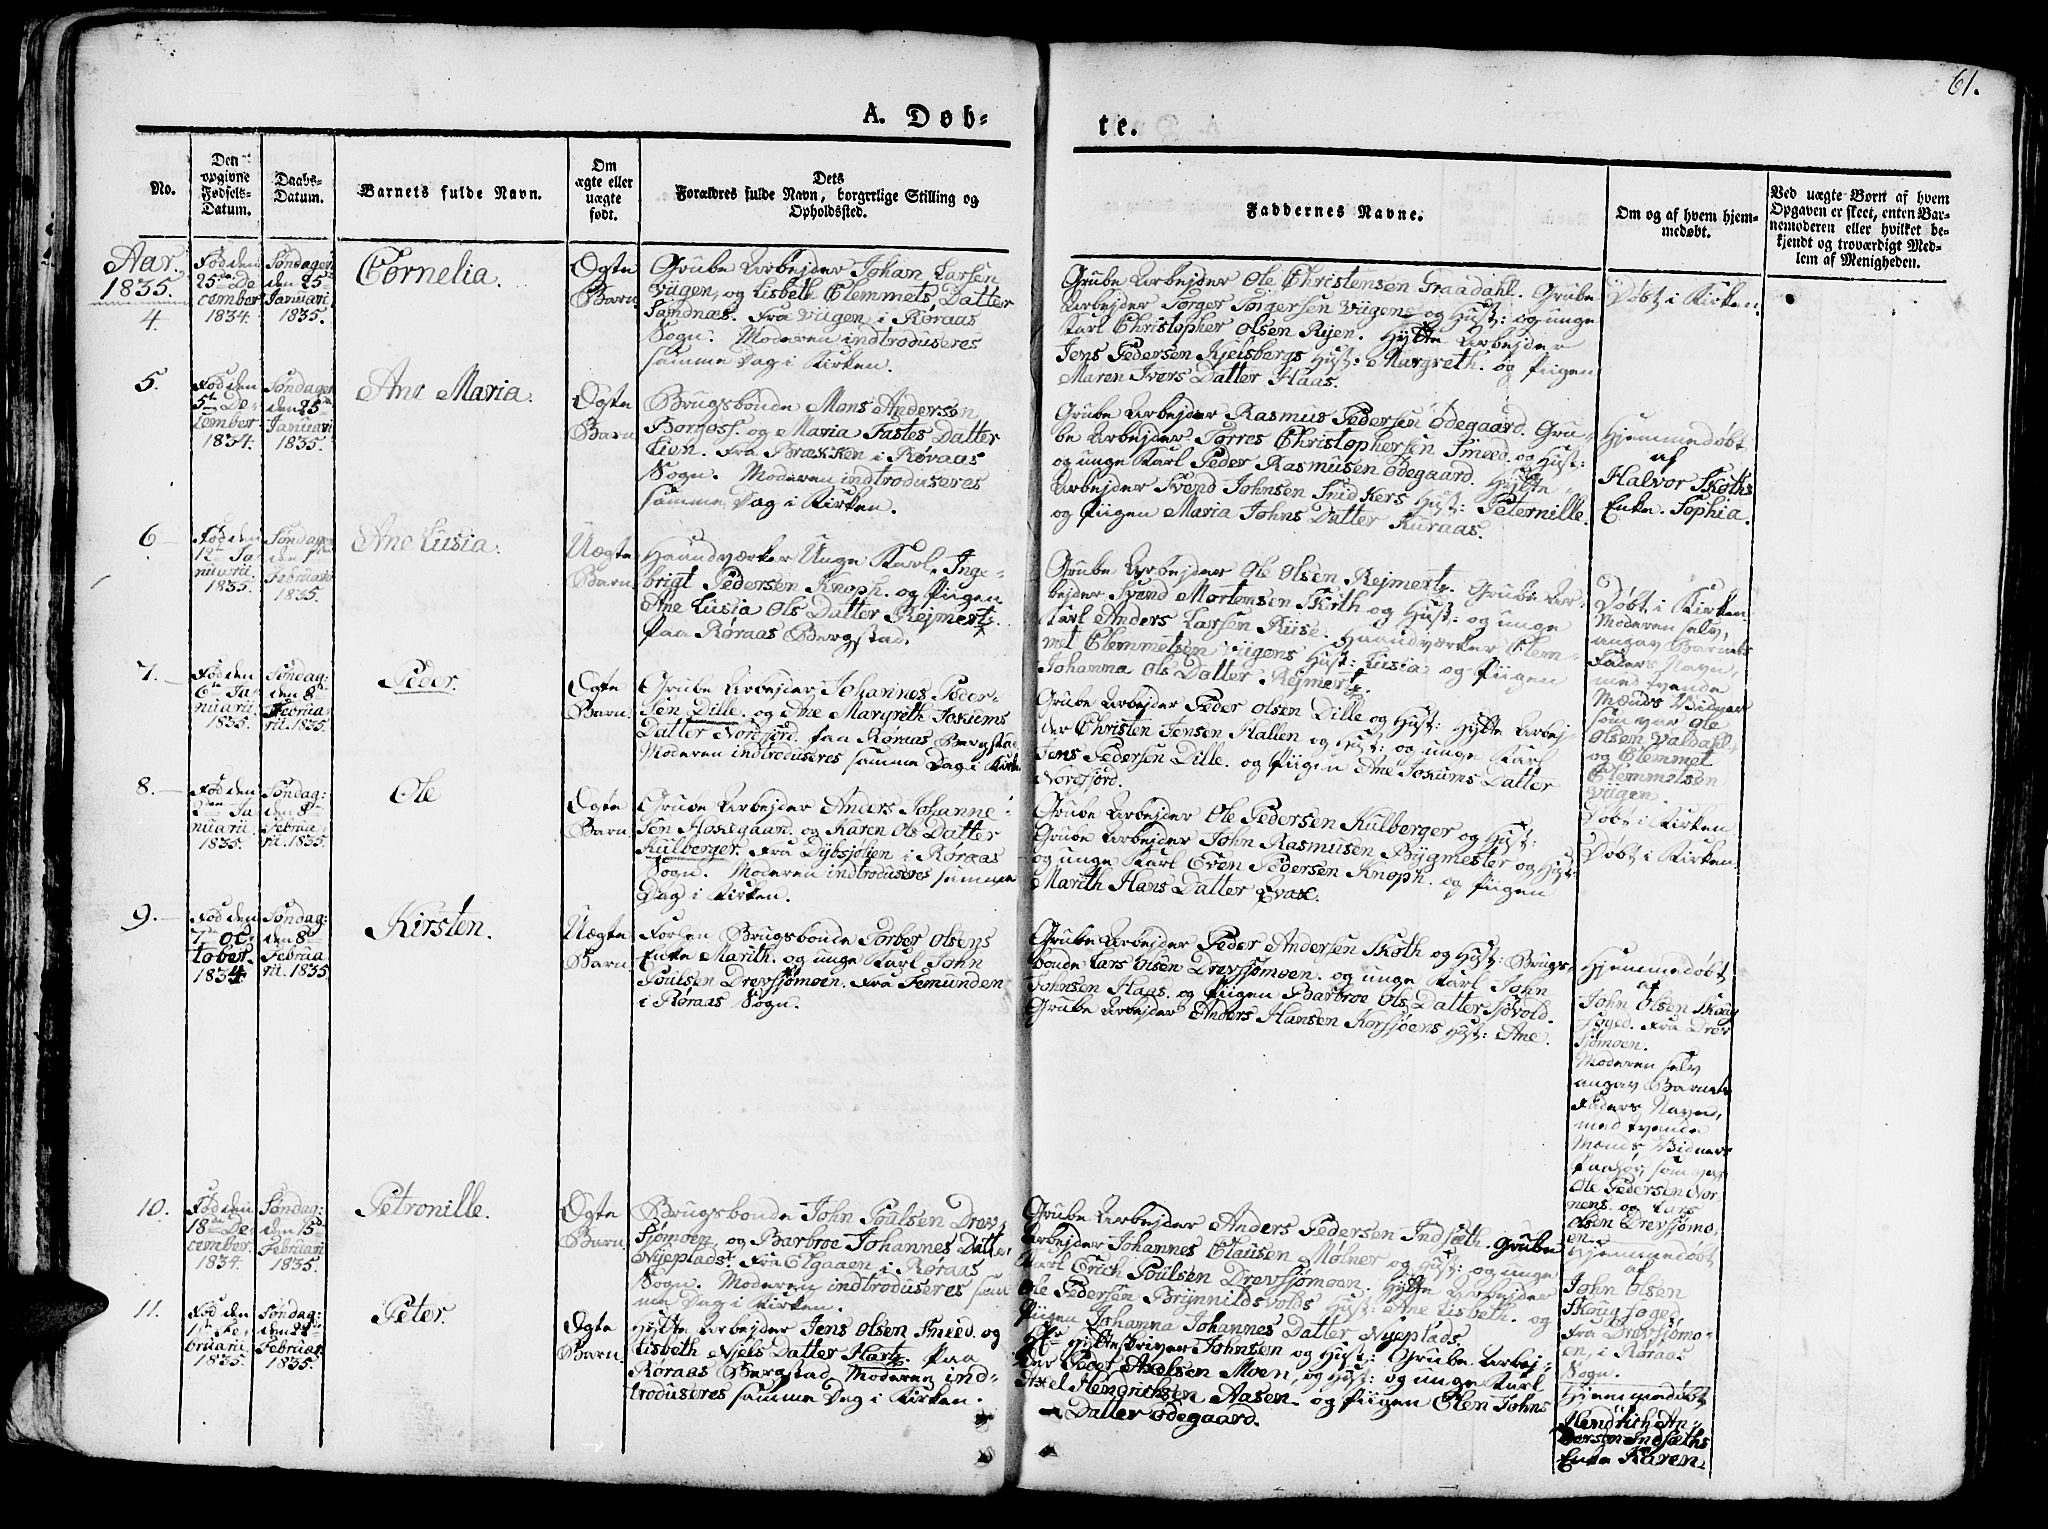 61.
A. Døb-
te.
No.
Den opgivne Fødsels-Datum.
Daabs-Datum.
Barnets fulde Navn.
Om ægte eller uægte født.
Dets Forældres fulde Navn, borgerlige Stilling og Opholdssted.
Faddernes Navne.
Om og af hvem hjemmedøbt.
Ved uægte Børn af hvem Opgaven er skeet, enten Barnemoderen eller hvilket bekjendt og troværdigt Medlem af Menigheden.
Aar
1835.
4.
Fød den
25de De
cember
1834.
Søndagen
den 25de
Januari
1835.
Cornelia.
Ægte
Barn
Grube Arbejder Johan Larsen
Viigen, og Lisbeth Clemmets Datter
Sandnæs. Fra Viigen i Røraas
Sogn. Moderen indtroduseres
samme Dag i Kirken.
Grube Arbejder Ole Christensen Graadahl. Grube
Arbejder Torger Torgersen Viigens og Hust: og unge
Karl Christopher Olsen Ryen. Hytte Arbejder
Jens Pedersen Kjelsbergs Hust: Margreth. og Piigen
Maren Ivers Datter Haas.
Døbt i Kirken.
5.
Fød den
5te De-
cember
1834.
Søndagen
den 25de
Januari
1835.
Ane Maria.
Ægte
Barn
Brugsbonde Mons Andersen
Borgos. og Maria Fastes Datter
Lien. Fra Brækken i Røraas
Sogn. Moderen indtroduseres
samme Dag i Kirken.
Grube Arbejder Rasmus Pedersen Ødegaard. Gru-
be Arbejder Torres Christophersen Smeed. og Hust:
og unge Karl Peder Rasmusen Ødegaard. Hytte
Arbejder Svend Johnsen Snidkers Hust: Peternille.
og Piigen Maria Johns Datter Kuraas.
Hjemmedøbt
af
Halvor Skøths
Enke. Sophia.
6
Fød den
12te Ja
nuarii
1835.
Søndagen
den 1ste
Februari
1835.
Ane Lusia.
Uægte
Barn
Haandværker Unge Karl. Inge-
brigt Pedersen Knoph. og Piigen
Ane Lusia Ols Datter Rejmertz.
paa Røraas Bergstad.
Grube Arbejder Ole Olsen Rejmertz. Grube Ar-
bejder Svend Mortensen Skøth og Hust: og unge
Karl Anders Larsen Riise. Haandværker Clem-
met Clemmetsen Viigens Hust: Lusia og Piigen
Johanna Ols Datter Rejmertz.
Døbt i Kirken
Moderen selv,
angav Barnets
Faders Navn,
med tvende
Mænds Vidner
som var Ole
Olsen Valdahl,
og Clemmet
Clemmetsen
Viigen.
7.
Fød den
6te Ja
nuarii
1835.
Søndag:
den 8de
Februa
rii. 1835
Peder.
Ægte
Barn.
Grube Arbejder Johannes Peder-
sen Dille. og Ane Margreth Jokums
Datter Nordfjord. paa Røraas Bergstad
Moderen indtroduseres samme Dag i Kirke
Grube Arbejder Peder Olsen Dille og Hust: Hytte Arbej
der Christen Jensen Hallen og Hust: og unge Karl
Jens Pedersen Dille. og Piigen Ane Jokums Datter
Nordfjord.
Døbt i Kirken
8.
Fød den
2den Ja
nuarii
1835.
Søndag:
den 8de
Februa
rii. 1835.
Ole
Ægte
Barn.
Grube Arbejder Anders Johanne-
sen Hoxsgaard. og Karen Ols Datter
Kulberger. Fra Dybsjølien i Røraas
Sogn. Moderen indtroduseres samme
Dag i Kirken.
Grube Arbejder Ole Pedersen Kulberger og Hust:
Grube Arbejder John Rasmusen Bygmester og Hust:
og unge Karl Even Pedersen Knoph. og Piigen
Marith Hans Datter Evax.
Døbt i Kirken.
9.
Fød den
7de Oc
tober.
1834
Søndag:
den 8de
Februa
rii. 1835
Kirsten.
Uægte
Barn.
Forlen Brugsbonde Torber Olsens
Enke Marith. og unge Karl John
Poulsen Drevsjømoen. Fra Femunden
i Røraas Sogn.
Grube Arbejder Peder Andersen Skøth og Hust: Brugs-
bonde Lars Olsen Drevsjømoen. og unge Karl John
Johnsen Haas. og Piigen Barbroe Ols Datter Sjøvold.
Grube Arbejder Anders Hansen Korssjøens Hust: Ane.
Hjemmedøbt
af
John Olsen Skoug
foged. Fra Drev
sjømoen.
Moderen selv
angav Barnets
Faders Navn,
med tvende
Mænds Vidners
Paahør, som var
Ole Pedersen Nor
nens. og Lars
Olsen Drevsjømo
en.
10.
Fød den
18de De
cember.
1834.
Søndag:
den 15de
Februari
1835.
Petronille.
Ægte
Barn.
Brugsbonde John Poulsen Drev
Sjømoen, og Barbroe Johannes Datter
Nyeplads. Fra Elgaaen i Røraas
Sogn. Moderen indtroduseres sam
me Dag i Kirken.
Grube Arbejder Anders Pedersen Indsæth. Grube
Arbejder Johannes Clausen Mølner og Hust: og unge
Karl Erich Poulsen Drevsjømoen. Hytte Arbejder
Ole Pedersen Brynnildsvolds Hust: Ane Lisbeth. og
Piigen Johanna Johannes Datter Nyeplads.
Hjemmedøbt
af
John Olsen
Skougfoged
Fra Drevsjømo-
en, i Røraas
Sogn.
11.
Fød den
1ste Fe
bruarii
1835.
Søndag:
den 22de
Februar
1835.
Peter.
Ægte
Barn.
Hytte Arbejder Jens Olsen Smeed. og
Lisbeth Niels Datter Hartz. paa
Røraas Bergstad Moderen ind-
troduseres samme Dag i Kirken.
Hr Hytteskriver Johnsen og Hust: Grube Arbej-
der Poet Axelsen Moen, og Hust: og unge Karl
Axel Hendrichsen Aasen. og Piigen Elen Johns
Datter Ødegaard.
Hjemmedøbt
Hendrich An-
dersen Indsæths
Enke Karen.